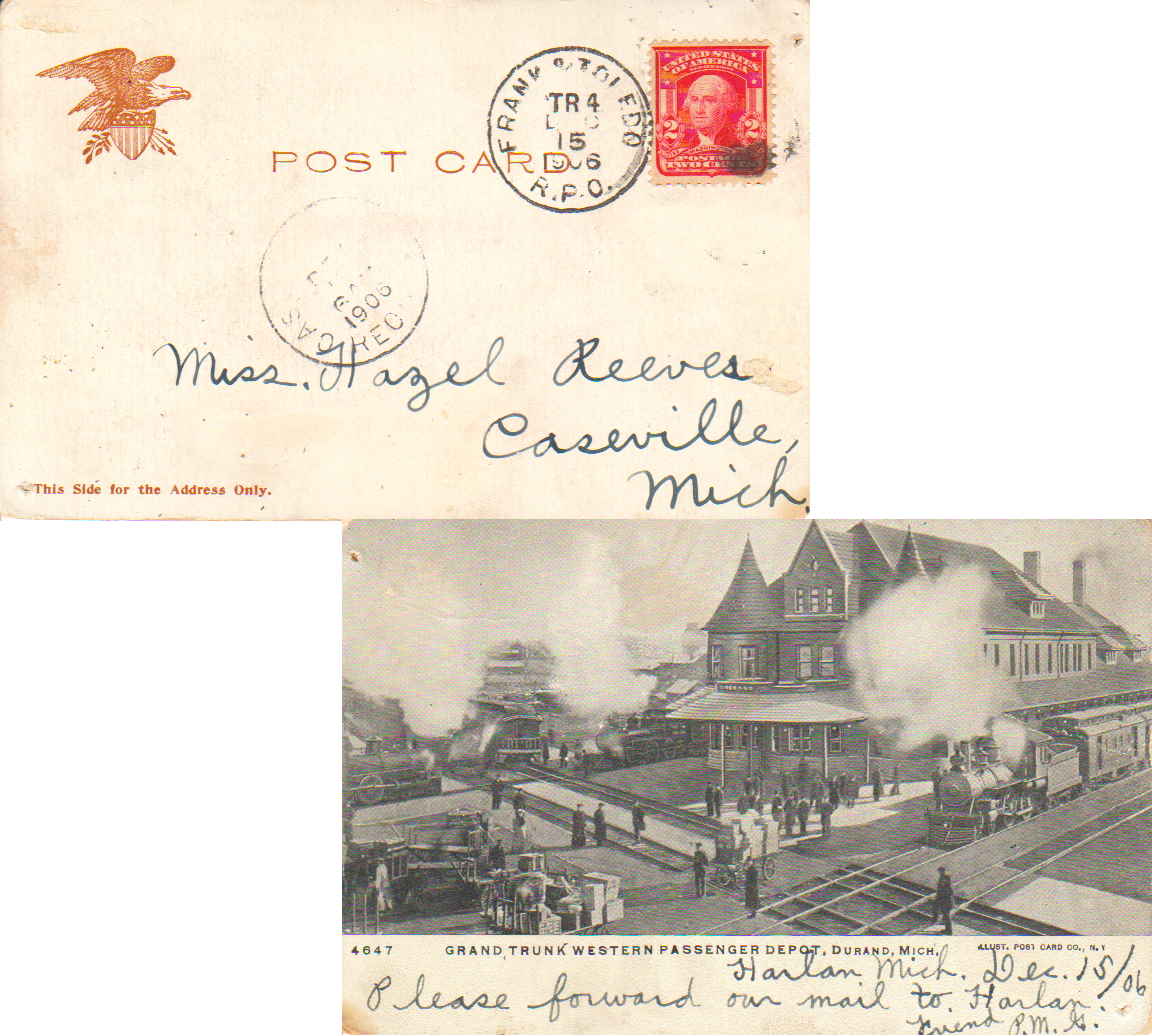 FRANK & TOLEDO
TR 4
DEC
15
1906
R.P.O.
UNITED STATES
OF AMERICA
2 2
POSTAGE
TWO CENTS
POST CARD
1906
REC
Miss. Hazel Reeves
Caseville,
Mich.
This Side for the Address Only.
DURAND
4647 GRAND TRUNK WESTERN PASSENGER DEPOT, DURAND, MICH. ILLUST. POST CARD CO., N.Y
Harlan Mich. Dec. 15/06
Please forward our mail to Harlan.
Friend P.M. G.